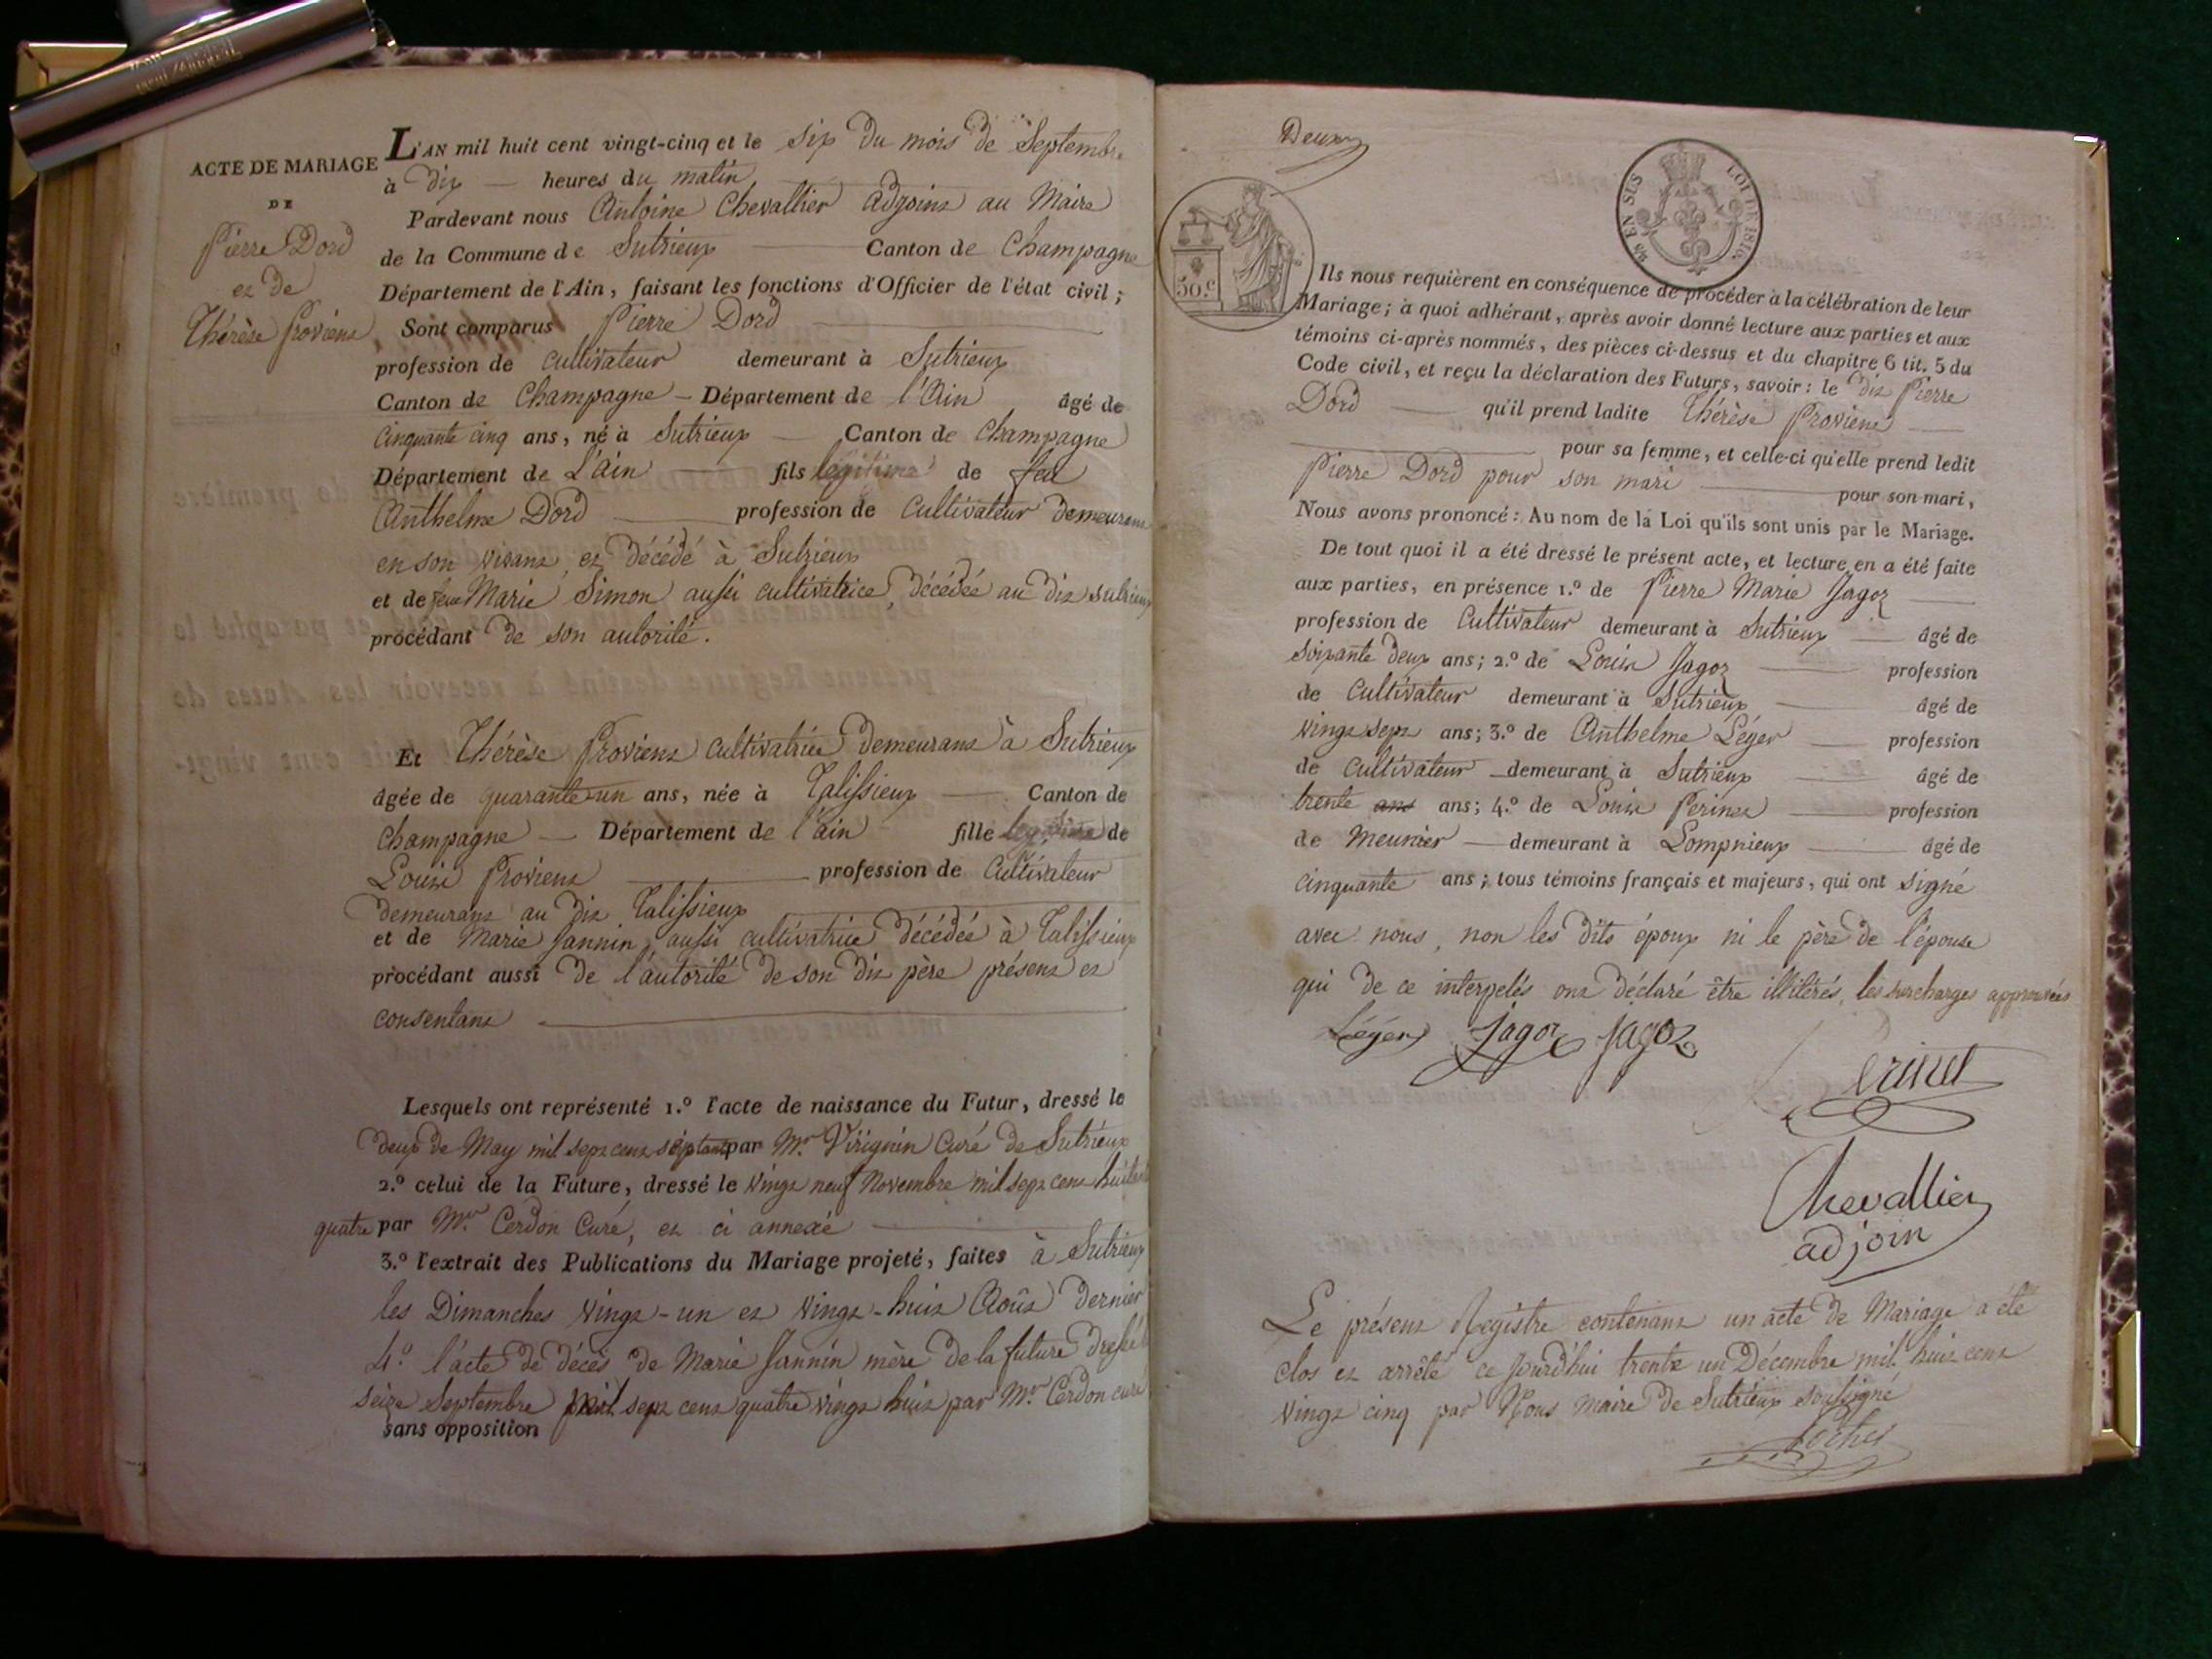 ACTE DE MARIAGE
DE
Pierre Dord
et de
Thérèse Provient
L'AN mil huit cent vingt-cinq et le six du mois de Septembre
à dix heures du matin
Pardevant nous Antoine Chevallier adjoint au Maire
de la Commune de Sutrieux Canton de Champagne
Département de l'Ain, faisant les fonctions d'Officier de l'état civil;
Sont comparus Pierre Dord
profession de cultivateur demeurant à Sutrieux
Canton de Champagne - Département de l'Ain âgé de
cinquante cinq ans, né à Sutrieux Canton de Champagne
Département de L'ain fils légitime de feu
Anthelme Dord profession de Cultivateur demeurant
en son vivant, et décédé à Sutrieux
et de feue Marie Simon aussi cultivatrice, décédée au dit sutrieux
procédant de son autorité.
Et Thérèse Provient cultivatrice demeurant à Sutrieux
âgée de quarante un ans, née à Talissieux Canton de
Champagne Département de l'ain fille légitime de
Louis Provient profession de Cultivateur
demeurant au dit Talissieux
et de Marie Jannin, aussi cultivatrice décédée à Talissieux
procédant aussi de l'autorité de son dit père présent et
consentant
Lesquels ont représenté 1.º l'acte de naissance du Futur, dressé le
deux de May mil sept cent septante par Mr. Virignin Curé de Sutrieux
2.º celui de la Future, dressé le vingt neuf Novembre mil sept cent huitante
quatre par Mr. Cerdon Curé, et ci annexé
3.º l'extrait des Publications du Mariage projeté, faites à Sutrieux
les Dimanches vingt-un et vingt-huit Août dernier
4.º l'acte de décès de Marie Jannin mère de la future dressé le
seize Septembre mil sept cent quatre vingt huit par Mr. Cerdon curé
sans opposition
Deux
EN SUS LOI DE 1816.
50.c
Ils nous requièrent en conséquence de procéder à la célébration de leur
Mariage; à quoi adhérant, après avoir donné lecture aux parties et aux
témoins ci-après nommés, des pièces ci-dessus et du chapitre 6 tit. 5 du
Code civil, et reçu la déclaration des Futurs, savoir: le dit Pierre
Dord qu'il prend ladite Thérèse Provient
pour sa femme, et celle-ci qu'elle prend ledit
Pierre Dord pour son mari pour son mari,
Nous avons prononcé: Au nom de la Loi qu'ils sont unis par le Mariage.
De tout quoi il a été dressé le présent acte, et lecture en a été faite
aux parties, en présence 1.º de Pierre Marie Jagoz
profession de Cultivateur demeurant à Sutrieux âgé de
soixante deux ans; 2.º de Louis Jagoz profession
de Cultivateur demeurant à Sutrieux âgé de
vingt sept ans; 3.º de Anthelme Léger profession
de cultivateur demeurant à Sutrieux âgé de
trente ans ans; 4.º de Louis Perinet profession
de meunier demeurant à Lompnieux âgé de
cinquante ans; tous témoins français et majeurs, qui ont signé
avec nous, non les dits époux ni le père de l'épouse
qui de ce interpelés ont déclaré être illitérés, les surcharges approuvées
Léger Jagoz Jagoz
Perinet
Chevallier
adjoin
Le présent Registre contenant un acte de Mariage a été
clos et arrêté ce jourd'hui trente un Décembre mil huit cent
vingt cinq par Nous Maire de Sutrieux soussigné